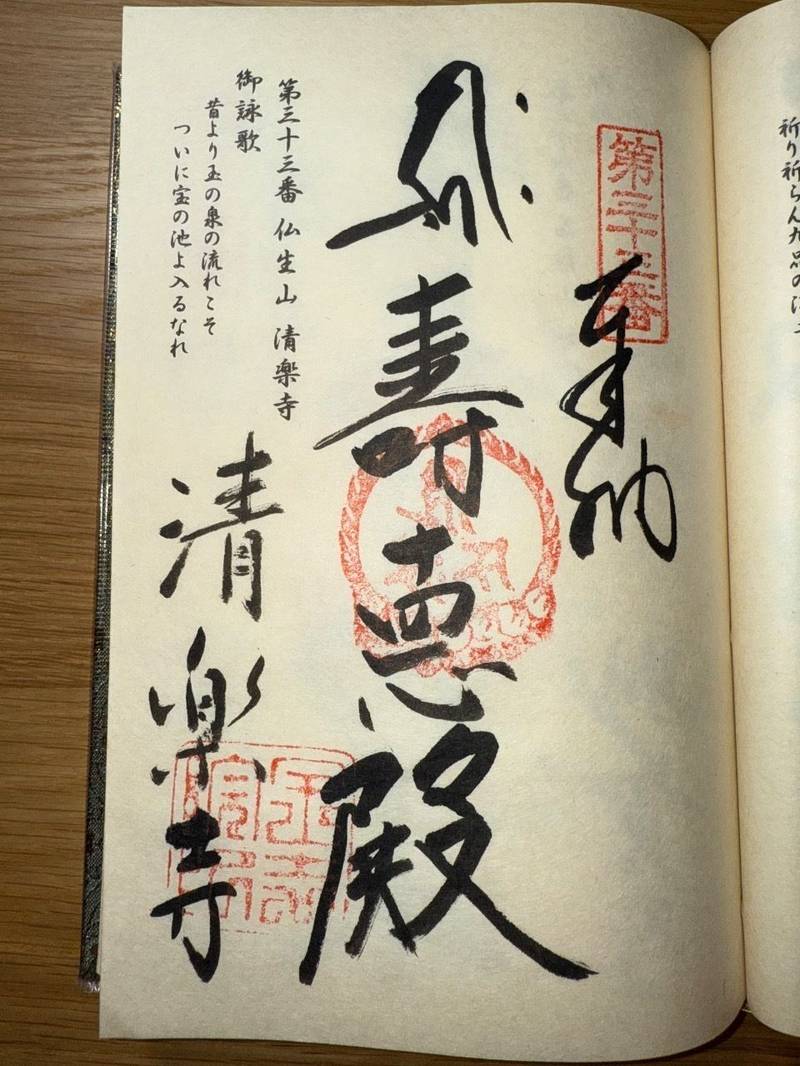 祈り祈らん九品の
第三十三番
奉納
壽悳殿
第三十三番 仏生山 清楽寺
御詠歌
昔より玉の泉の流れこそ
ついに宝の池よ入るなれ
清樂寺